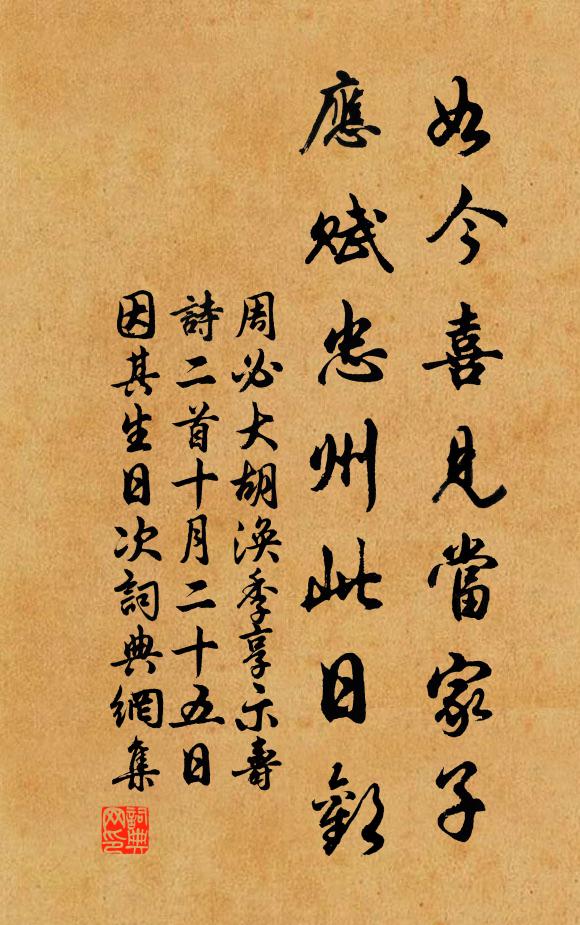 如今喜見當家子
應賦忠州此日歡
周必大胡渙季享示壽
詩二首十月二十五日
因其生日次詞典網集
詞典
网印